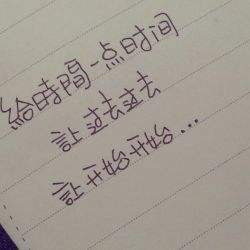 給時間一点时间
让过去过去
让开始开始...